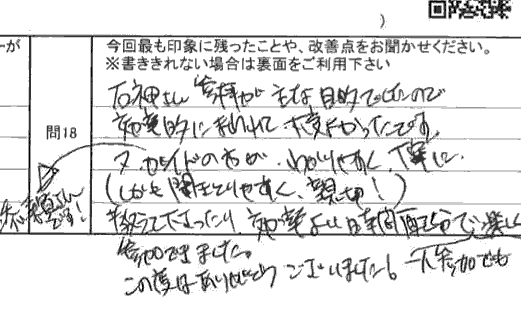 )
ーが
今回最も印象に残ったことや、改善点をお聞かせください。
※書ききれない場合は裏面をご利用下さい
問18
石神さん 参拝が主な目的でしたので
効率的にまわれて、大変よかったです。
又、ガイドの方が、わかりやすく、丁寧に、
(しかも聞きとりやすく、親切!)
教えて下さったり、効率よい時間配分で楽しく
参加できました。
この度はありがとうございました!
です!
参加でも